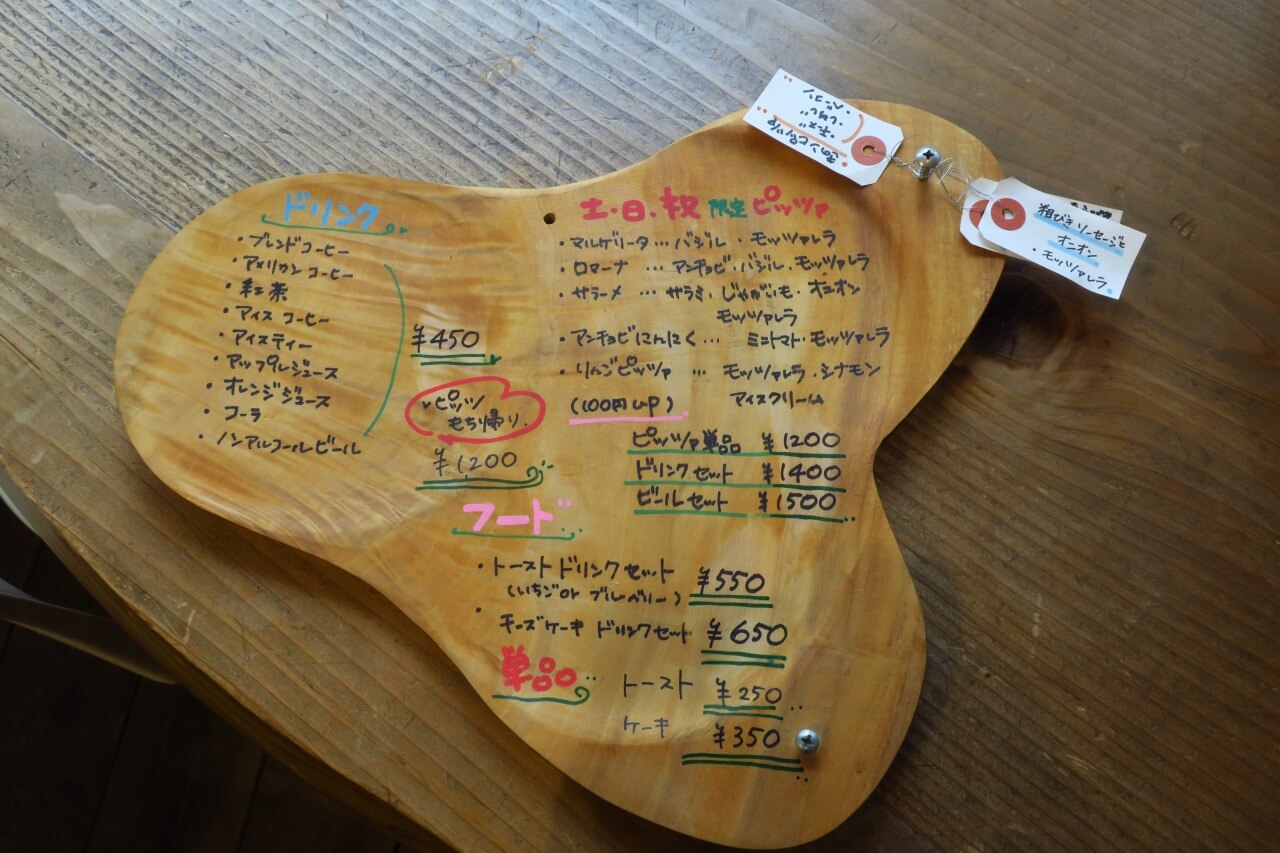 ドリンク
・ブレンドコーヒー
・アメリカンコーヒー
・紅茶
・アイスコーヒー
・アイスティー
・アップルジュース
・オレンジジュース
・コーラ
・ノンアルコールビール
¥450
ピッツァ
もち帰り
¥1200
土・日・祝 限定 ピッツァ
・マルゲリータ…バジル・モッツァレラ
・ロマーナ…アンチョビ・バジル・モッツァレラ
・サラーメ…サラミ・じゃがいも・オニオン
モッツァレラ
・アンチョビにんにく…ミニトマト・モッツァレラ
・りんごピッツァ…モッツァレラ・シナモン
(100円up) アイスクリーム
ピッツァ単品 ¥1200
ドリンクセット ¥1400
ビールセット ¥1500
フード
・トーストドリンクセット ¥550
(いちごor ブルーベリー)
・チーズケーキ ドリンクセット ¥650
単品 トースト ¥250
ケーキ ¥350
・チーズ
・しめじ
・ベーコン
粗びきソーセージと
オニオン
・モッツァレラ